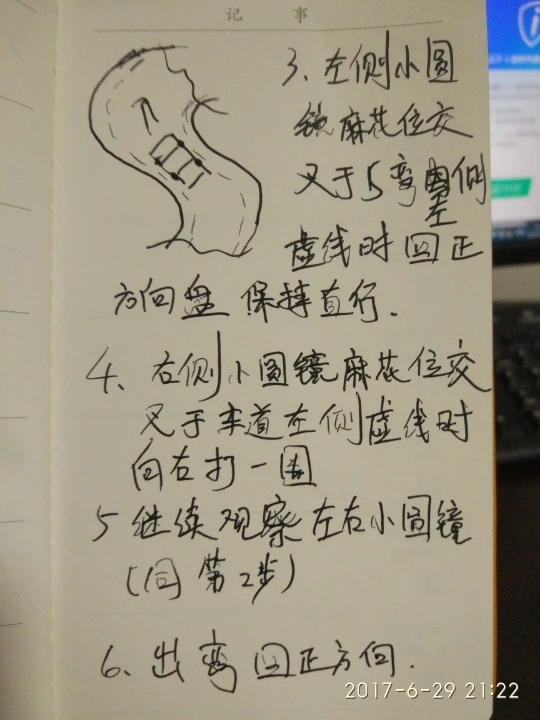 记 事
3、左侧小圆
镜麻花位交
叉于S弯侧
左
虚线时回正
方向盘 保持直行.
4、右侧小圆镜麻花位交
叉于车道左侧虚线时
向右打一圈
5 继续观察左右小圆镜
(同第2步)
6、出弯回正方向.
2017-6-29 21:22